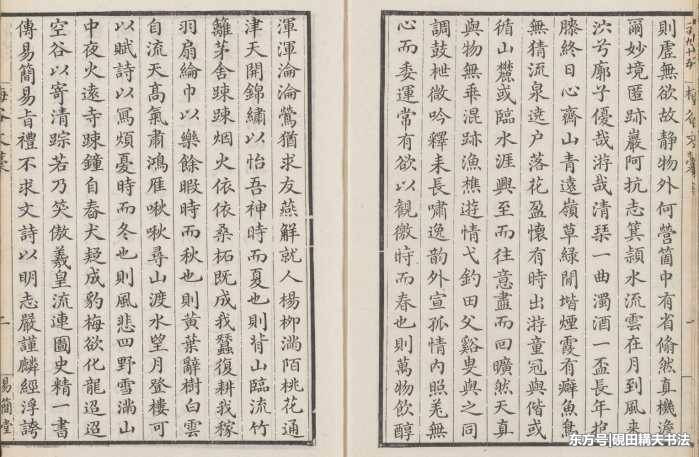 則虛無欲故靜物外何營箇中有省翛然直機澹
爾妙境匿跡巖阿抗志箕潁水流雲在月到風來
兮廓優哉游哉清琴一曲濁酒一盃長年抱
膝終日心齋山青遠嶺草綠閒堦煙霞有癖魚鳥
無猜流泉遶户落花盈懷有時出游童冠與偕或
循山麓或臨水涯興至而往意盡而回曠然天真
與物無乖混跡漁樵遊情弋釣田父谿叟與之同
調鼓枻微吟釋耒長嘯逸韵外宣孤情內照羌無
心而委運常有欲以觀徼時而春也則萬物飲醇
渾渾淪淪鶯猶求友燕解就人楊柳滿陌桃花通
津天開錦繡以怡吾神時而夏也則背山臨流竹
籬茅舍踈踈烟火依依桑柘既成我蠶復耕我稼
羽扇綸巾以樂餘暇時而秋也則黃葉辭樹白雲
自流天高氣肅鴻雁啾啾尋山渡水望月登樓可
以賦詩以寫煩憂時而冬也則風悲四野雪滿山
中夜火遠寺踈鐘自舂犬疑成豹梅欲化龍迢迢
空谷以寄清踪若乃笑傲羲皇流連圖史精一書
傳易簡易禮不求文詩以明志嚴謹麟經浮誇
二
易簡堂
东方号|硯田耩夫书法